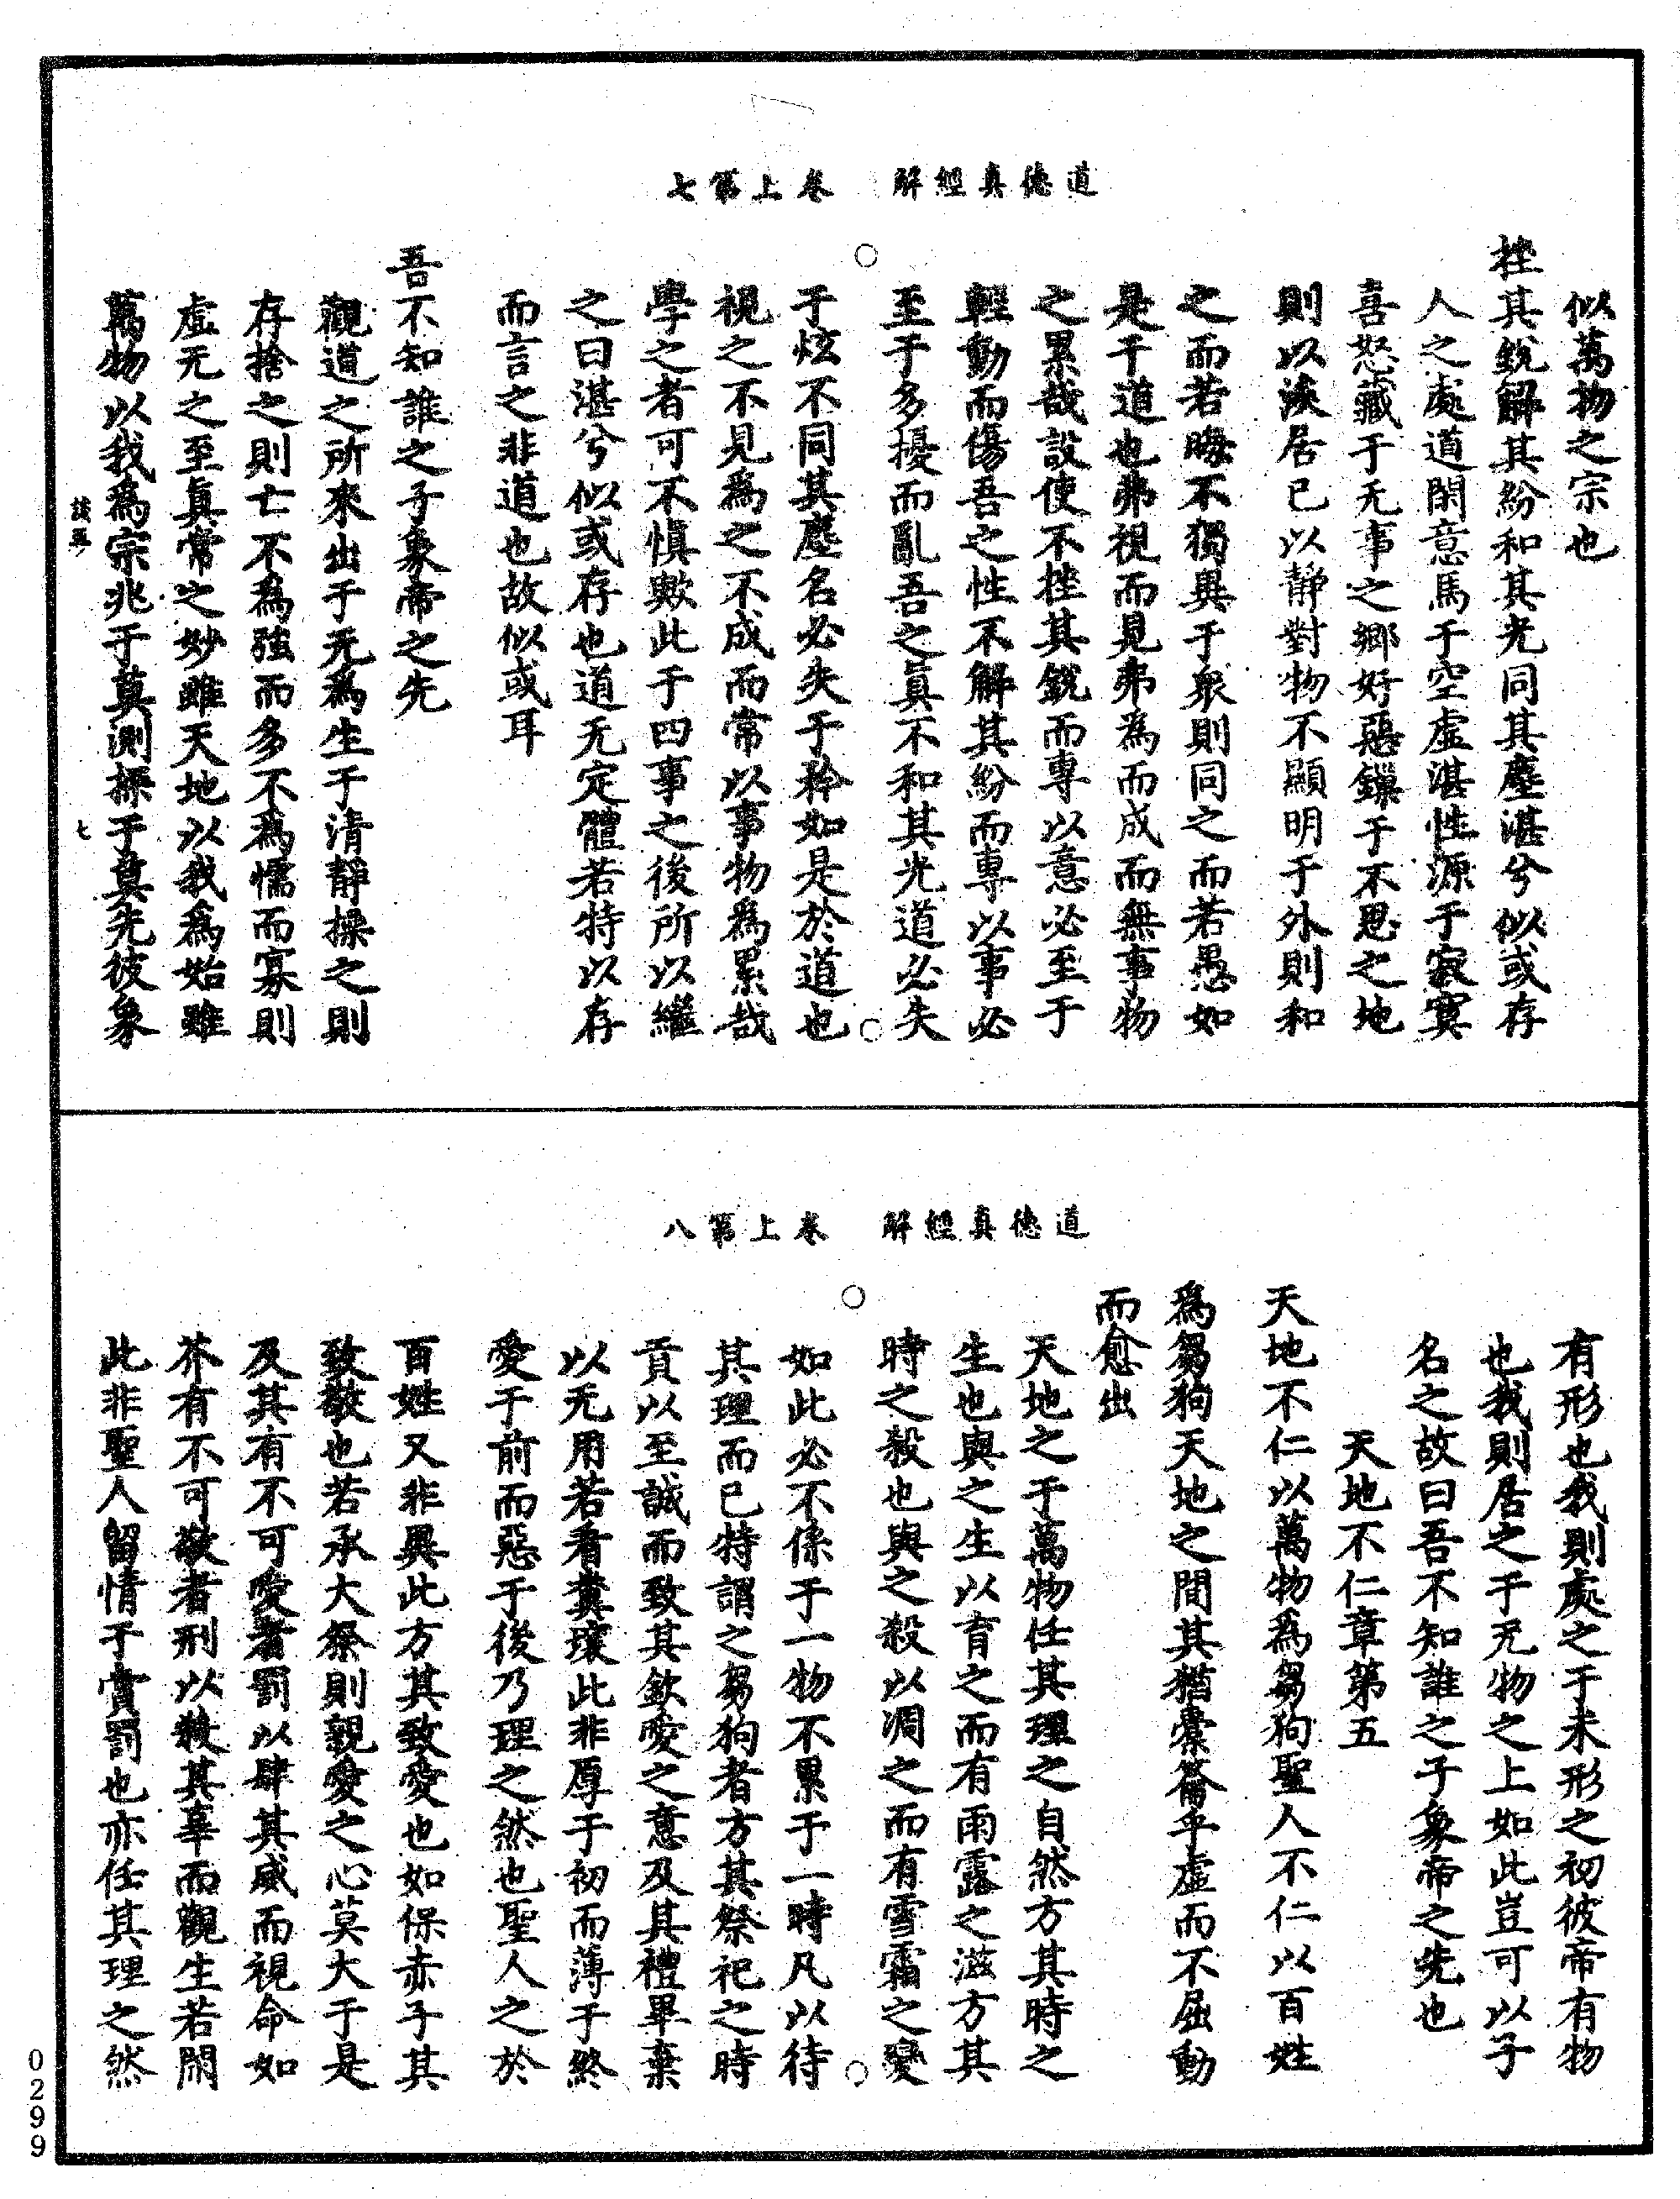 道德真經解　卷上第七
似萬物之宗也
挫其銳解其紛和其光同其塵湛兮似或存
人之處道閑意馬于空虛湛性源于寂寞
喜怒藏于无事之鄉好惡鏁于不思之地
則以淡居已以靜對物不顯明于外則和
之而若晦不獨異于衆則同之而若愚如
是干道也弗視而見弗為而成而無事物
之累哉設使不挫其銳而專以意必至于
輕動而傷吾之性不解其紛而專以事必
至于多擾而亂吾之真不和其光道必失
于炫不同其塵名必失于矜如是於道也
視之不見為之不成而常以事物為累哉
學之者可不慎歟此于四事之後所以繼
之曰湛兮似或存也道无定體若特以存
而言之非道也故似或耳
吾不知誰之子象帝之先
觀道之所來出于无為生于清靜操之則
存捨之則亡不為強而多不為懦而寡則
虛无之至真常之妙雖天地以我為始雖
萬物以我為宗兆于莫測操于莫先彼象
七
道德真經解　卷上第八
有形也我則處之于未形之初彼帝有物
也我則居之于无物之上如此豈可以子
名之故曰吾不知誰之子象帝之先也
天地不仁章第五
天地不仁以萬物為芻狗聖人不仁以百姓
為芻狗天地之間其猶橐籥乎虛而不屈動
而愈出
天地之于萬物任其理之自然方其時之
生也與之生以育之而有雨露之滋方其
時之殺也與之殺以凋之而有雪霜之變
如此必不係于一物不累于一時凡以待
其理而已特謂之芻狗者方其祭祀之時
貢以至誠而致其欽愛之意及其禮畢棄
以无用若看糞壤此非厚于初而薄于終
愛于前而惡于後乃理之然也聖人之於
百姓又非異此方其致愛也如保赤子其
致敬也若承大祭則親愛之心莫大于是
及其有不可愛者罰以肆其威而視命如
芥有不可敬者刑以殺其辜而觀生若閑
此非聖人留情于賞罰也亦任其理之然
0299